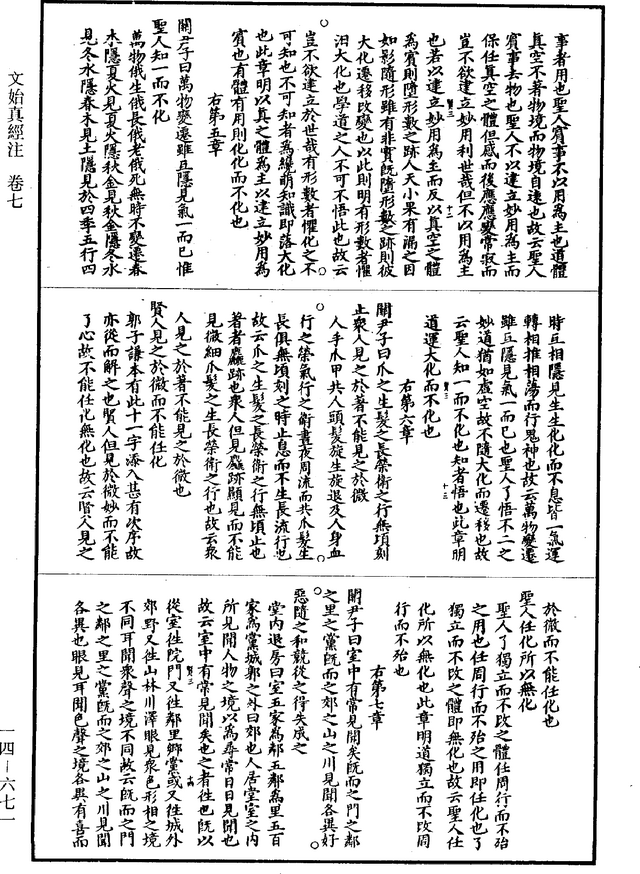 文始真經注 卷七
一四—六七一
事者用也聖人賓事不以用為主也道體
真空不著物境而物境自遠也故云聖人
賓事去物也聖人不以建立妙用為主而
保任真空之體但感而後應應變常寂而
豈不欲建立妙用利世哉但不以用為主
也若以建立妙用為主而反以真空之體
為賓則隨形數之跡人天小果有漏之因
如影隨形雖有非實既隨形數之跡則彼
大化遷移改變也以此則明有形數者懼
汩大化也學道之人不可不悟此也故云
豈不欲建立於世哉有形數者懼化之不
可知也不可知者為纔萌知識即落大化
也此章明以真之體為主以建立妙用為
賓也有體有用則化化而不化也
右第五章
關尹子曰萬物變遷雖互隱見氣一而已惟
聖人知一而不化
萬物俄生俄長俄老俄死無時不變遷春
木隱夏火見夏火隱秋金見秋金隱冬水
見冬水隱春木見土隱見於四季五行四
時互相隱見生生化化而不息皆一氣運
轉相推相蕩而行鬼神也故云萬物變遷
雖互隱見氣一而已也聖人了悟不二之
妙道猶如虛空故不隨大化而遷移也故
云聖人知一而不化也知者悟也此章明
道運大化而不化也
右第六章
關尹子曰爪之生髮之長榮衛之行無頃刻
止衆人見之於著不能見之於微
人手爪甲共人頭髮旋生旋退及人身血
行之榮氣行之衛晝夜周流而共爪髮生
長俱無頃刻之時止息而不生長流行也
故云爪之生髮之長榮衛之行無頃止也
著者麤跡也衆人但見麤跡顯見而不能
見微細爪髮之生長榮衛之行也故云衆
人見之於著不能見之於微也
賢人見之於微而不能任化
郭子謙本有此十一字添入甚有次序故
亦從而解之也賢人但見於微妙而不能
了心故不能任化無化也故云賢人見之
於微而不能任化也
聖人任化所以無化
聖人了獨立而不改之體任周行而不殆
之用也任周行而不殆之用即任化也了
獨立而不改之體即無化也故云聖人任
化所以無化也此章明道獨立而不改周
行而不殆也
右第七章
關尹子曰室中有常見聞矣既而之門之鄰
之里之黨既而之郊之山之川見聞各異好
惡隨之和競從之得失成之
堂內退房曰室五家為鄰五鄰為里五百
家為黨城郭之外曰郊也人居堂室之內
所見聞人物之境以為尋常日日見聞也
故云室中有常見聞矣也之者往也既以
從室往院門又往鄰里鄉黨或又往城外
郊野又往山林川澤眼見衆色形相之境
不同耳聞衆聲之境不同故云既而之門
之鄰之里之黨既而之郊之山之川見聞
各異也眼見耳聞色聲之境各異有喜而